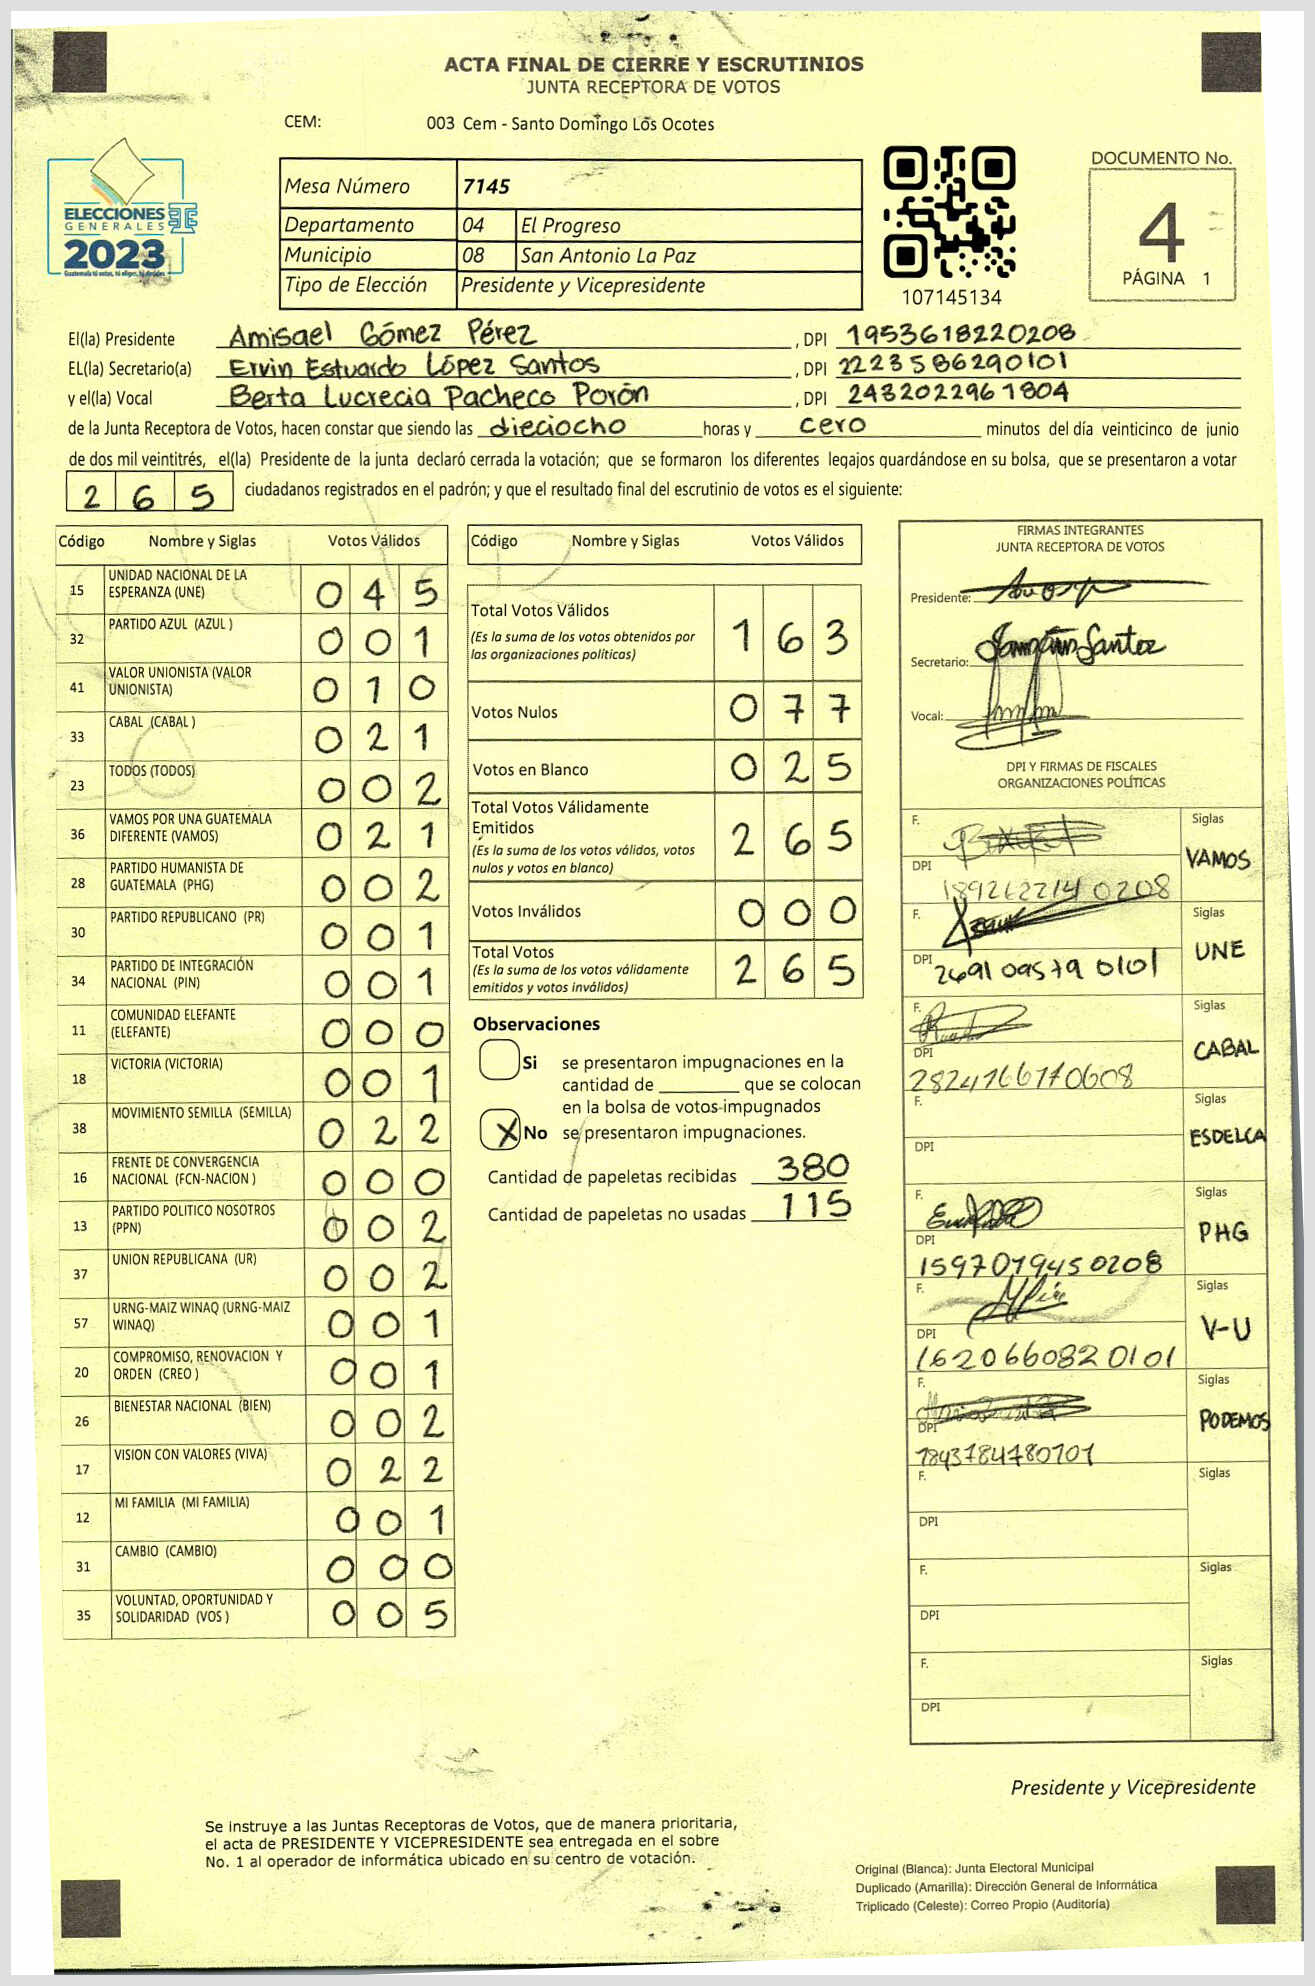 ACTA FINAL DE CIERRE Y ESCRUTINIOS
JUNTA RECEPTORA DE VOTOS
CEM: 003 Cem - Santo Domingo Los Ocotes
ELECCIONES
GENERALES
2023
Guatemala tú votas, tú eliges, tú decides
Mesa Número 7145
Departamento 04 El Progreso
Municipio 08 San Antonio La Paz
Tipo de Elección Presidente y Vicepresidente
107145134
DOCUMENTO No.
4
PÁGINA 1
El(la) Presidente Amisael Gómez Pérez , DPI 1953618220208
EL(la) Secretario(a) Ervin Estuardo López Santos , DPI 2223586290101
y el(la) Vocal Berta Lucrecia Pacheco Porón , DPI 2432022961804
de la Junta Receptora de Votos, hacen constar que siendo las dieciocho horas y cero minutos del día veinticinco de junio
de dos mil veintitrés, el(la) Presidente de la junta declaró cerrada la votación; que se formaron los diferentes legajos guardándose en su bolsa, que se presentaron a votar
265 ciudadanos registrados en el padrón; y que el resultado final del escrutinio de votos es el siguiente:
Código Nombre y Siglas Votos Válidos
15 UNIDAD NACIONAL DE LA ESPERANZA (UNE) 045
32 PARTIDO AZUL (AZUL ) 001
41 VALOR UNIONISTA (VALOR UNIONISTA) 010
33 CABAL (CABAL ) 021
23 TODOS (TODOS) 002
36 VAMOS POR UNA GUATEMALA DIFERENTE (VAMOS) 021
28 PARTIDO HUMANISTA DE GUATEMALA (PHG) 002
30 PARTIDO REPUBLICANO (PR) 001
34 PARTIDO DE INTEGRACIÓN NACIONAL (PIN) 001
11 COMUNIDAD ELEFANTE (ELEFANTE) 000
18 VICTORIA (VICTORIA) 001
38 MOVIMIENTO SEMILLA (SEMILLA) 022
16 FRENTE DE CONVERGENCIA NACIONAL (FCN-NACION ) 000
13 PARTIDO POLITICO NOSOTROS (PPN) 002
37 UNION REPUBLICANA (UR) 002
57 URNG-MAIZ WINAQ (URNG-MAIZ WINAQ) 001
20 COMPROMISO, RENOVACION Y ORDEN (CREO ) 001
26 BIENESTAR NACIONAL (BIEN) 002
17 VISION CON VALORES (VIVA) 022
12 MI FAMILIA (MI FAMILIA) 001
31 CAMBIO (CAMBIO) 000
35 VOLUNTAD, OPORTUNIDAD Y SOLIDARIDAD (VOS ) 005
Código Nombre y Siglas Votos Válidos
Total Votos Válidos 163
(Es la suma de los votos obtenidos por
las organizaciones políticas)
Votos Nulos 077
Votos en Blanco 025
Total Votos Válidamente
Emitidos 265
(Es la suma de los votos válidos, votos
nulos y votos en blanco)
Votos Inválidos 000
Total Votos 265
(Es la suma de los votos válidamente
emitidos y votos inválidos)
Observaciones
Si se presentaron impugnaciones en la
cantidad de ________ que se colocan
en la bolsa de votos impugnados
X No se presentaron impugnaciones.
Cantidad de papeletas recibidas 380
Cantidad de papeletas no usadas 115
FIRMAS INTEGRANTES
JUNTA RECEPTORA DE VOTOS
Presidente:
Secretario:
Vocal:
DPI Y FIRMAS DE FISCALES
ORGANIZACIONES POLÍTICAS
F. Siglas
VAMOS
DPI
F. Siglas
UNE
DPI 2691095790101
F. Siglas
CABAL
DPI
2824766170608
F. Siglas
ESDELCA
DPI
F. Siglas
PHG
DPI
1597079450208
F. Siglas
V-U
DPI
1620660820101
F. Siglas
PODEMOS
DPI
F. Siglas
DPI
F. Siglas
DPI
F. Siglas
DPI
Presidente y Vicepresidente
Se instruye a las Juntas Receptoras de Votos, que de manera prioritaria,
el acta de PRESIDENTE Y VICEPRESIDENTE sea entregada en el sobre
No. 1 al operador de informática ubicado en su centro de votación.
Original (Blanca): Junta Electoral Municipal
Duplicado (Amarilla): Dirección General de Informática
Triplicado (Celeste): Correo Propio (Auditoría)